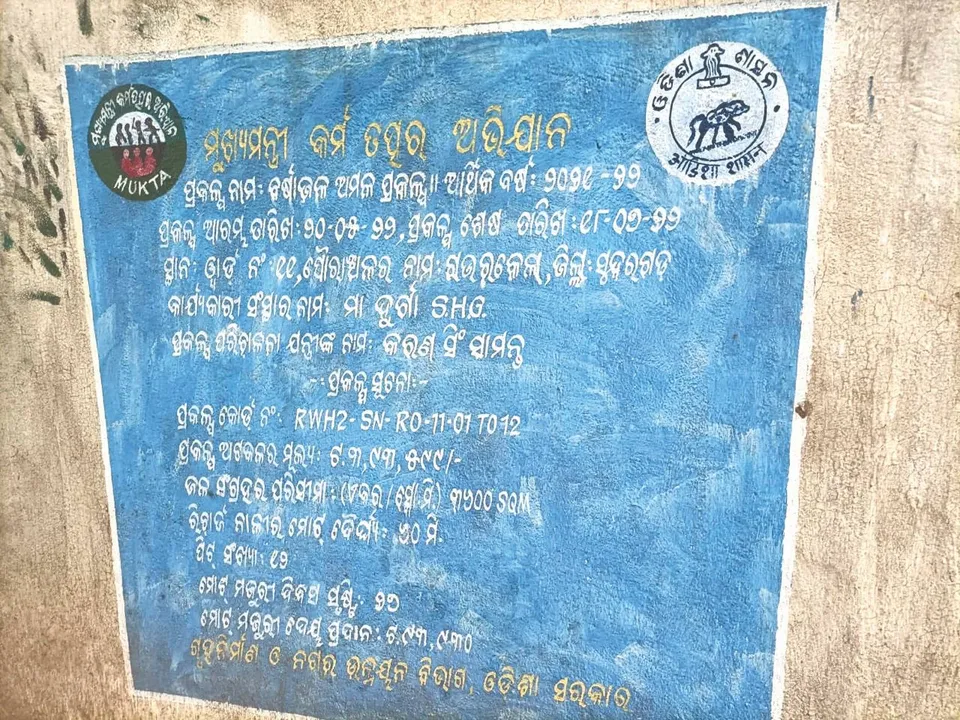 ମୁଖ୍ୟମନ୍ତ୍ରୀ କର୍ମ ତତ୍ପର ଅଭିଯାନ
MUKTA
ଓଡ଼ିଶା ଶାସନ
ओड़िशा शासन
ପ୍ରକଳ୍ପ ନାମ: ବର୍ଷାଜଳ ଅମଳ ପ୍ରକଳ୍ପ॥ ଆର୍ଥିକ ବର୍ଷ: ୨୦୨୧-୨୨
ପ୍ରକଳ୍ପ ଆରମ୍ଭ ତାରିଖ: ୨୦-୦୫-୨୨, ପ୍ରକଳ୍ପ ଶେଷ ତାରିଖ: ୧୮-୦୭-୨୨
ସ୍ଥାନ: ୱାର୍ଡ ନଂ ୧୧, ପୌରାଞ୍ଚଳର ନାମ: ରାଉରକେଲା, ଜିଲ୍ଲା: ସୁନ୍ଦରଗଡ଼
କାର୍ଯ୍ୟକାରୀ ସଂସ୍ଥାର ନାମ: ମା ଦୁର୍ଗା S.H.G.
ପ୍ରକଳ୍ପ ପରିଚାଳନା ଯନ୍ତ୍ରୀଙ୍କ ନାମ: କରଣ ସିଂ ସାମନ୍ତ
-:ପ୍ରକଳ୍ପ ସୂଚନା:-
ପ୍ରକଳ୍ପ କୋଡ଼୍ ନଂ: RWH2-SN-RO-11-01 TO 12
ପ୍ରକଳ୍ପ ଅଟକଳର ମୂଲ୍ୟ: ଟ.୩,୯୩,୫୯୯/-
ଜଳ ସଂଗ୍ରହର ପରିସୀମା: (ଏକର/ସ୍କୋ.ମି) ୩୬୦୦ SQM
ରିଚାର୍ଜ ନାଳୀର ମୋଟ୍ ଦୈର୍ଘ୍ୟ: ୬୦ ମି.
ପିଟ୍ ସଂଖ୍ୟା: ୧୨
ମୋଟ୍ ମଜୁରୀ ଦିବସ ସୃଷ୍ଟି:
ମୋଟ୍ ମଜୁରୀ ଦେୟ ପ୍ରଦାନ: ଟ.୯୩,୯୩୦
ଗୃହନିର୍ମାଣ ଓ ନଗର ଉନ୍ନୟନ ବିଭାଗ, ଓଡିଶା ସରକାର